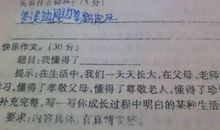 快乐作文。(30分)
题目:我懂得了
提示:在生活中,我们一天天长大,在父母、老师
习,懂得了孝敬父母,懂得了尊敬老人,懂得了珍
补充完整,写一写你成长过程中明白的某种生活
要求:内容具体,有真情实感。